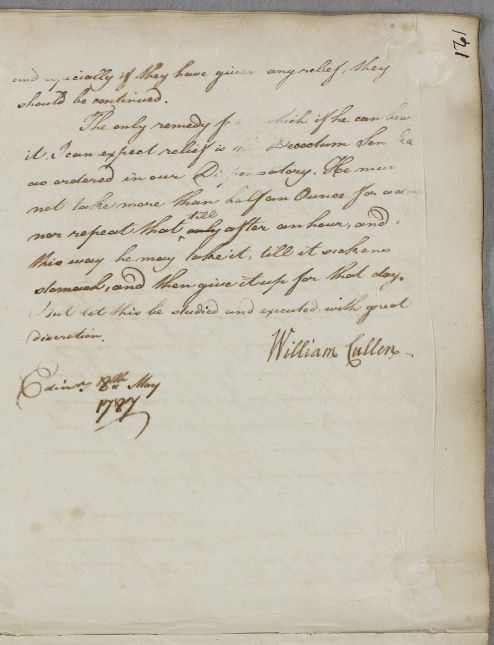 121
and especially if they have given any relief, they
should be continued.
The only remedy f which if he can bear
it, I can expect relief is the Decoctum Sen ka
as ordered in our Dispensatory. He must
not take more than half an Ounce for a dose
nor repeat that till only after an hour, and
this way he may take it, till it sickens
stomach, and then give it up for that day.
But let this be studied and executed with great
discretion.
William Cullen
Edinr. 8th. May
1787